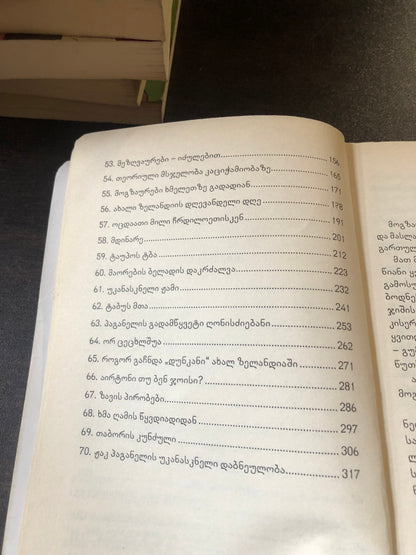 53. მეზღვაურები – იძულებით 156
54. თეორიული მსჯელობა კაციჭამიობაზე 165
55. მოგზაურები ხმელეთზე გადადიან 171
56. ახალი ზელანდიის დღევანდელი დღე 178
57. ოცდაათი მილი ჩრდილოეთისკენ 191
58. მდინარე 201
59. ტაუპოს ტბა 212
60. მაორების ბელადის დაკრძალვა 223
61. უკანასკნელი ჟამი 232
62. ტაბუს მთა 241
63. პაგანელის გადამწყვეტი ღონისძიებანი 253
64. ორ ცეცხლშუა 262
65. როგორ გაჩნდა „დუნკანი" ახალ ზელანდიაში 271
66. აირტონი თუ ბენ ჯოისი? 281
67. ზავის პირობები 286
68. ხმა ღამის წყვდიადიდან 297
69. თაბორის კუნძული 306
70. ჟაკ პაგანელის უკანასკნელი დაბნეულობა 317
მოგზა
და მასლა
გართულ
მათ მ
წიანი ყ
გამოსუ
ბოდნე
ჯიშის
კისერ
ყვითლ
– გუნ
წუთ
მოგ
ნე
სა
ლ
ს